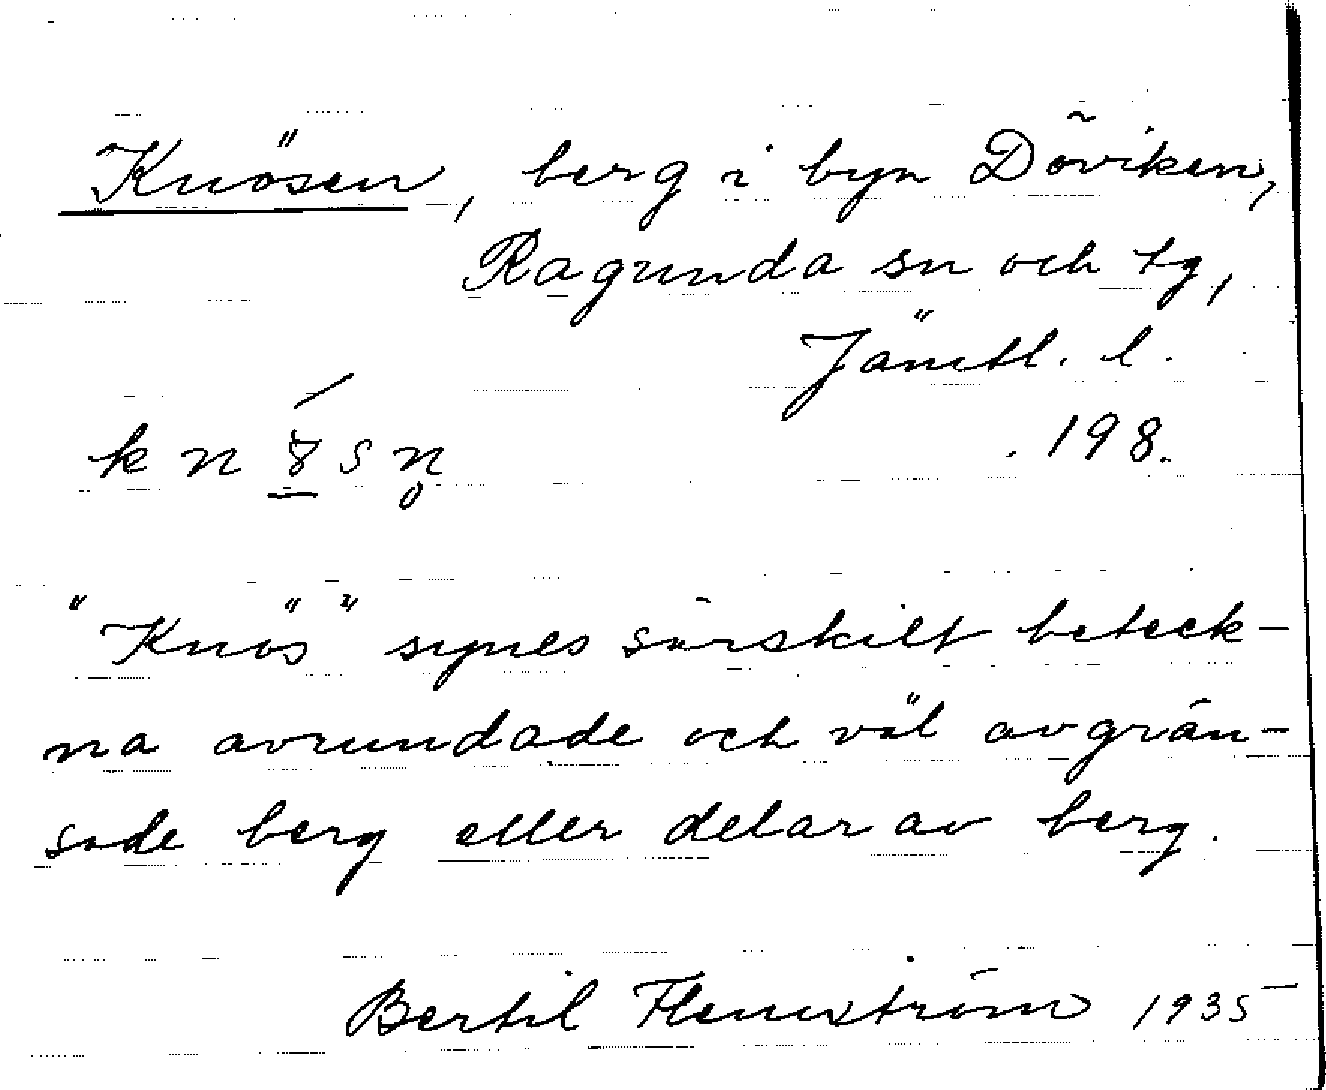 Knösen, berg i byn Döviken,
Ragunda sn och tg,
Jämtl. l.
198.
"Knös" synes särskilt beteck-
na avrundade och väl avgrän-
sade berg eller delar av berg.
Bertil Flemström 1935